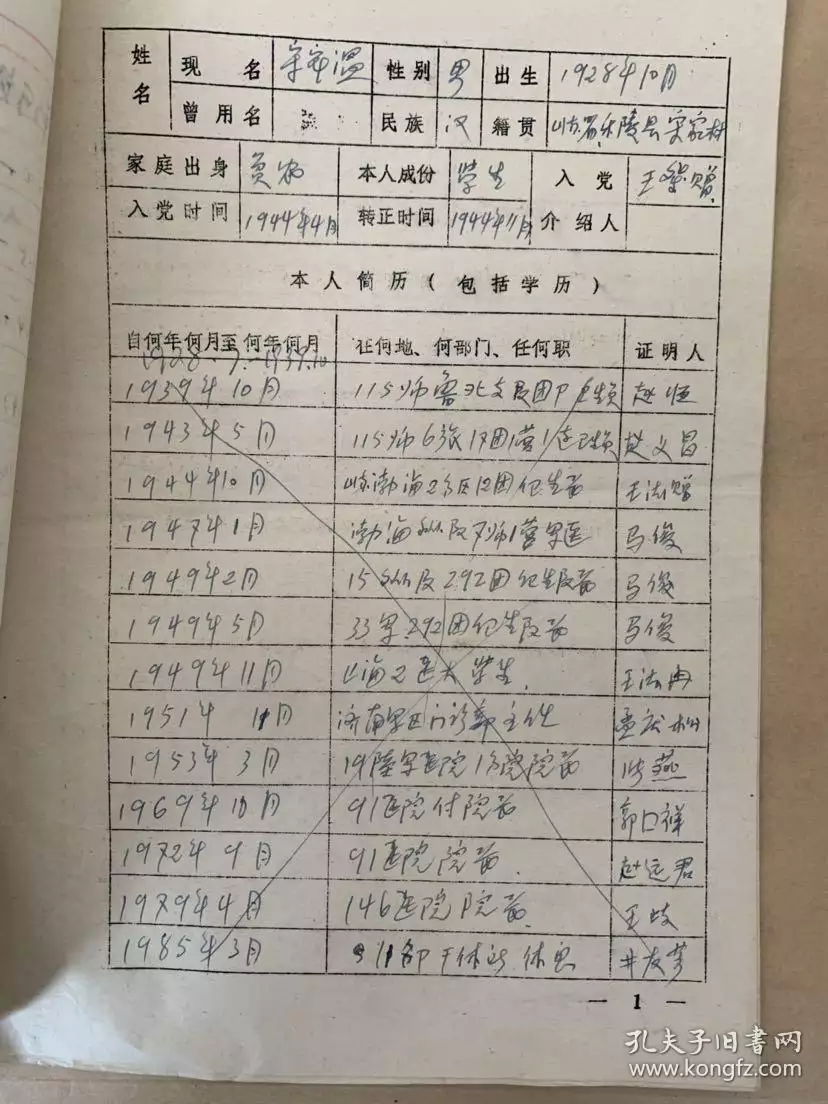 姓名 现名 性别 男 出生 1928年10月
曾用名 民族 汉 籍贯 山东省乐陵县宋家村
家庭出身 贫农 本人成份 学生 入党介绍人 王
入党时间 1944年4月 转正时间 1944年11月
本人简历(包括学历)
自何年何月至何年何月 在何地、何部门、任何职 证明人
1939年10月 115师鲁北支 赵恒
1943年5月 115师6旅17团1营1连 昌
1944年10月 山东渤海2分区12团卫生员
1947年1月 渤海纵队7师1营军医 马俊
1949年2月 15纵队292团卫生队长 马俊
1949年5月 33军292团卫生队长 马俊
1949年11月 上海2医大学生 王
1951年11月 济南军区门诊部主任 孟
1953年3月 19陆军医院1分院院长 燕
1969年10月 91医院付院长 郭口祥
1972年9月 91医院院长 赵远君
1979年4月 146医院院长 王岐
1985年3月 干休所休息 井友
— 1 —
孔夫子旧书网
www.kongfz.com